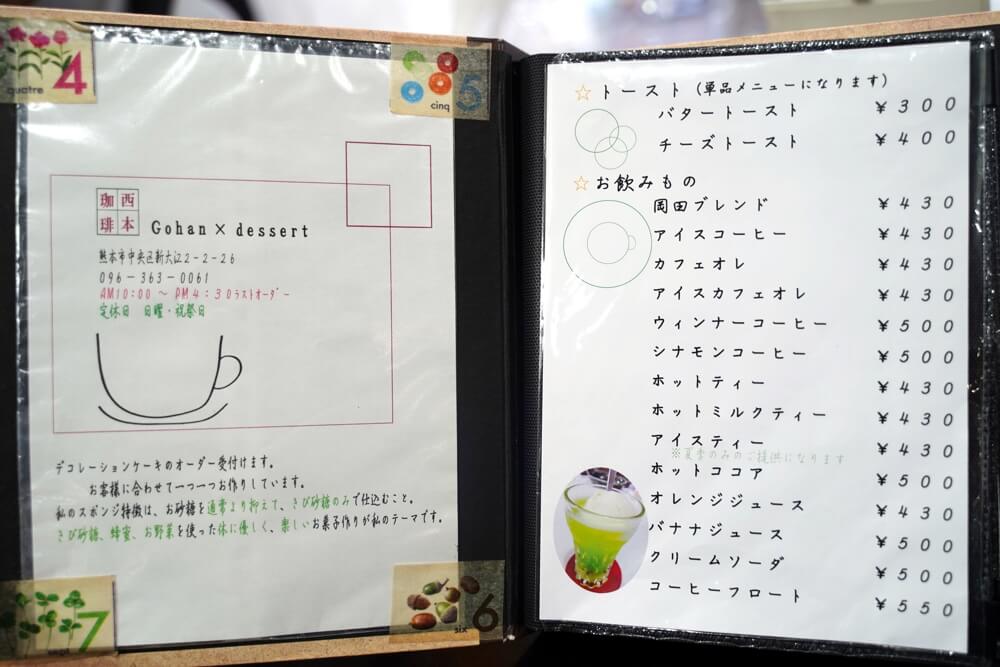 4
quatre
5
cinq
珈西
琲本 Gohan×dessert
熊本市中央区新大江2-2-26
096-363-0061
AM10:00 〜 PM4:30ラストオーダー
定休日 日曜・祝祭日
デコレーションケーキのオーダー受付けます。
お客様に合わせて一つ一つお作りしています。
私のスポンジ特徴は、お砂糖を通常より抑えて、きび砂糖のみで仕込むこと。
きび砂糖、蜂蜜、お野菜を使った体に優しく、楽しいお菓子作りが私のテーマです。
7
sept
6
six
☆ トースト (単品メニューになります)
バタートースト ¥300
チーズトースト ¥400
☆ お飲みもの
岡田ブレンド ¥430
アイスコーヒー ¥430
カフェオレ ¥430
アイスカフェオレ ¥430
ウィンナーコーヒー ¥500
シナモンコーヒー ¥500
ホットティー ¥430
ホットミルクティー ¥430
アイスティー ¥430
※夏季のみのご提供になります
ホットココア ¥500
オレンジジュース ¥430
バナナジュース ¥500
クリームソーダ ¥500
コーヒーフロート ¥550